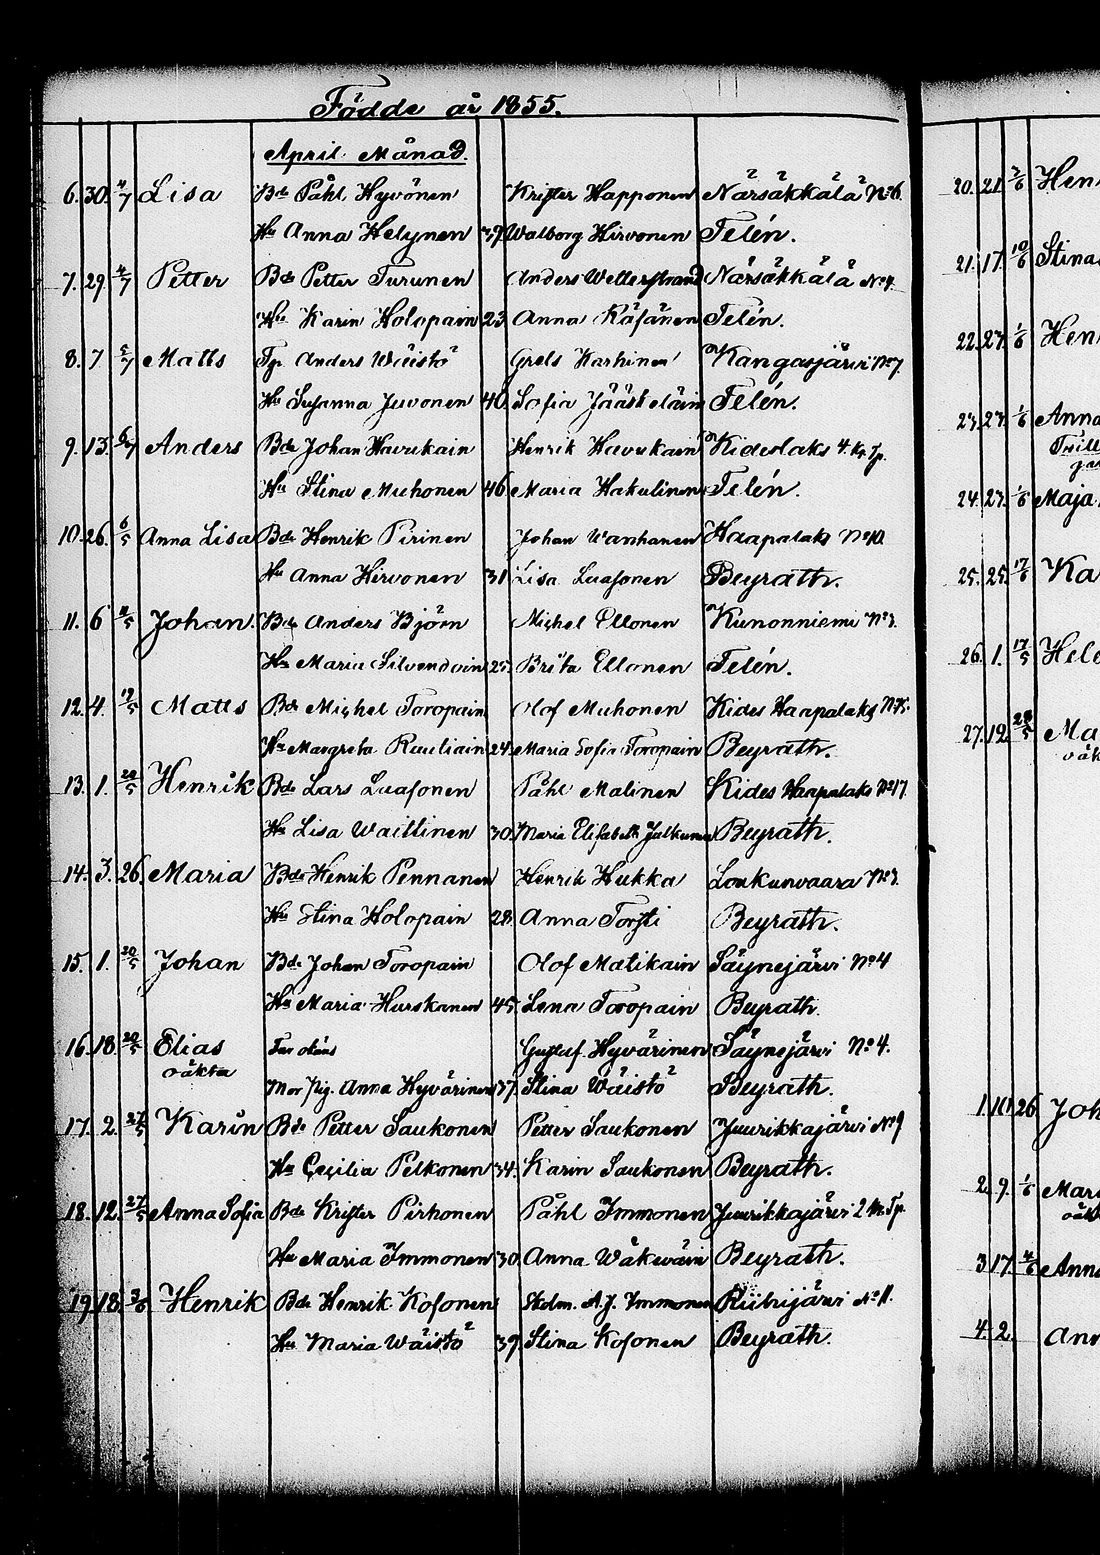 Födde år 1855.
April Månad.
6. 30. 4/7 Lisa Bde Påhl Hyvönen Krister Happonen Närsäkkälä No 6.
Hu Anna Helynen 39 Walborg Hirvonen Telén.
7. 29. 4/7 Petter Bde Petter Turunen Anders Wetterstrand Närsäkkälä No 4.
Hu Karin Holopain 23 Anna Räsänen Telén.
8. 7. 5/7 Matts Tp Anders Wäistö Grels Karhinen Kangasjärvi No 7.
Hu Susanna Juvonen 40. Sofia Jääskeläin Telén.
9. 13. 6/7 Anders Bde Johan Havukain Henrik Havukain Kideslaks 4. Kr. Tp.
Hu Stina Muhonen 46 Maria Hakulinen Telén.
10. 26. 6/5 Anna Lisa Bde Henrik Pirinen Johan Wanhanen Haapalaks No 10.
Hu Anna Hirvonen 31 Lisa Luasonen Beyrath.
11. 6 11/5 Johan. Bde Anders Björn Mickel Ellonen Kunonniemi No 3.
Hu Maria Silvendoin 25. Brita Ellonen Telén.
12. 4. 19/5 Matts Bde Mickel Toropain Olof Muhonen Kides Haapalaks
Hu Margreta Ruuliain 24. Maria Sofia Toropain Beyrath.
13. 1. 20/5 Henrik Bde Lars Luasonen Påhl Malinen Kides Haapalaks No 17
Hu Lisa Waittinen 30. Maria Elisabeth Jalkunen Beyrath.
14. 3. 26. Maria Bde Henrik Pennanen Henrik Hukka Loukunvaara No 3.
Hu Stina Holopain 28. Anna Torsti Beyrath.
15. 1. 20/5 Johan Bde Johan Toropain Olof Matikain Säynejärvi No 4
Hu Maria Hurskanen 45. Lena Toropain Beyrath.
16. 18. 20/5 Elias Gustaf Hyvärinen Säynejärvi No 4.
oäkta Mor Pig. Anna Hyvärinen 37. Stina Wäistö Beyrath.
17. 2. 27/5 Karin Bde Petter Saukonen Petter Saukonen Juurikkajärvi No 9
Hu Cecilia Pelkonen 34. Karin Saukonen Beyrath.
18. 12. 27/5 Anna Sofia Bde Krister Pirhonen Påhl Immonen Juurikkajärvi 2 Kr. Tp.
Hu Maria Immonen 30. Anna Wäkeväin Beyrath.
19. 18. 3/6 Henrik Bde Henrik Kosonen Skolm. A.J. Immonen Riihijärvi No 11.
Hu Maria Wäistö 39. Stina Kosonen Beyrath.
20. 21. 2/6 Hen
21. 17. 10/6 Stina
22. 27. 1/6 Hen
23. 27. 1/6 Anna
24. 27. 1/6 Maja
25. 25. 17/6 Ka
26. 1. 17/5 Hele
27. 12. 28/5 Ma
oäk
1. 10. 26 Joh
2. 9. 1/6 Mari
oäk
3. 17. 4/6 Anna
4. 2. Ann